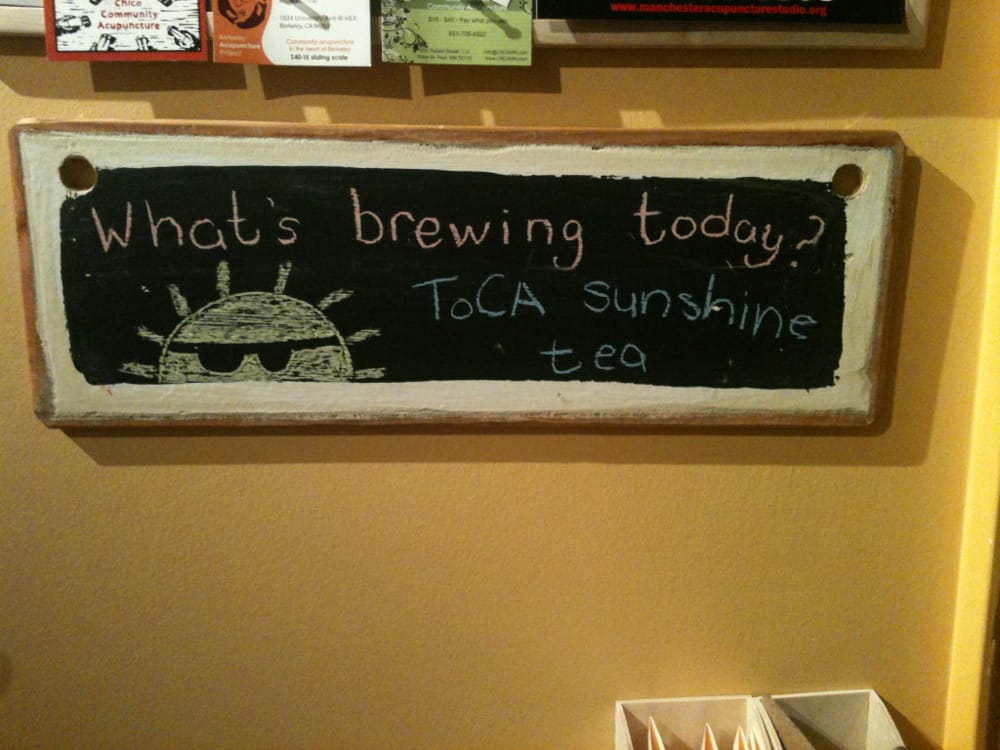 Chico
Community
Acupuncture
1834 University Ave @ MLK
Berkeley, CA
Berkeley
Acupuncture
Project
Community acupuncture
in the heart of Berkeley
$40-15 sliding scale
Community Acupuncture
$15 - $40 - Pay what you can
www.manchesteracupuncturestudio.org
What's brewing today?
ToCA sunshine
tea